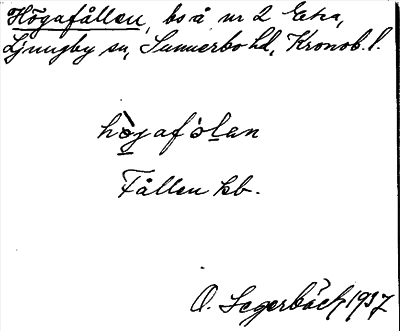 Högafållen, bs å nr 2 Etra,
Ljungby sn, Sunnerbo hd, Kronob. l.
hògafólan
Fållen kb.
O. Segerbäck 1937